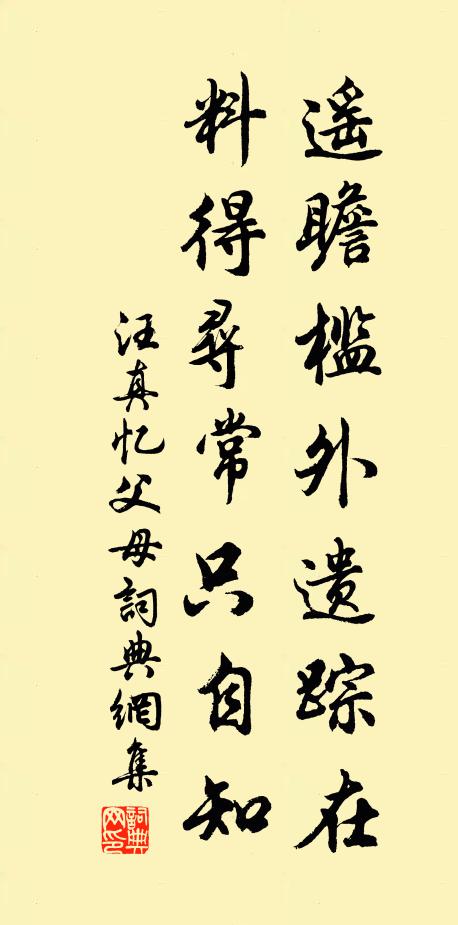 遥瞻檻外遗踪在
料得尋常只自知
汪真忆父母詞典網集
詞典网印